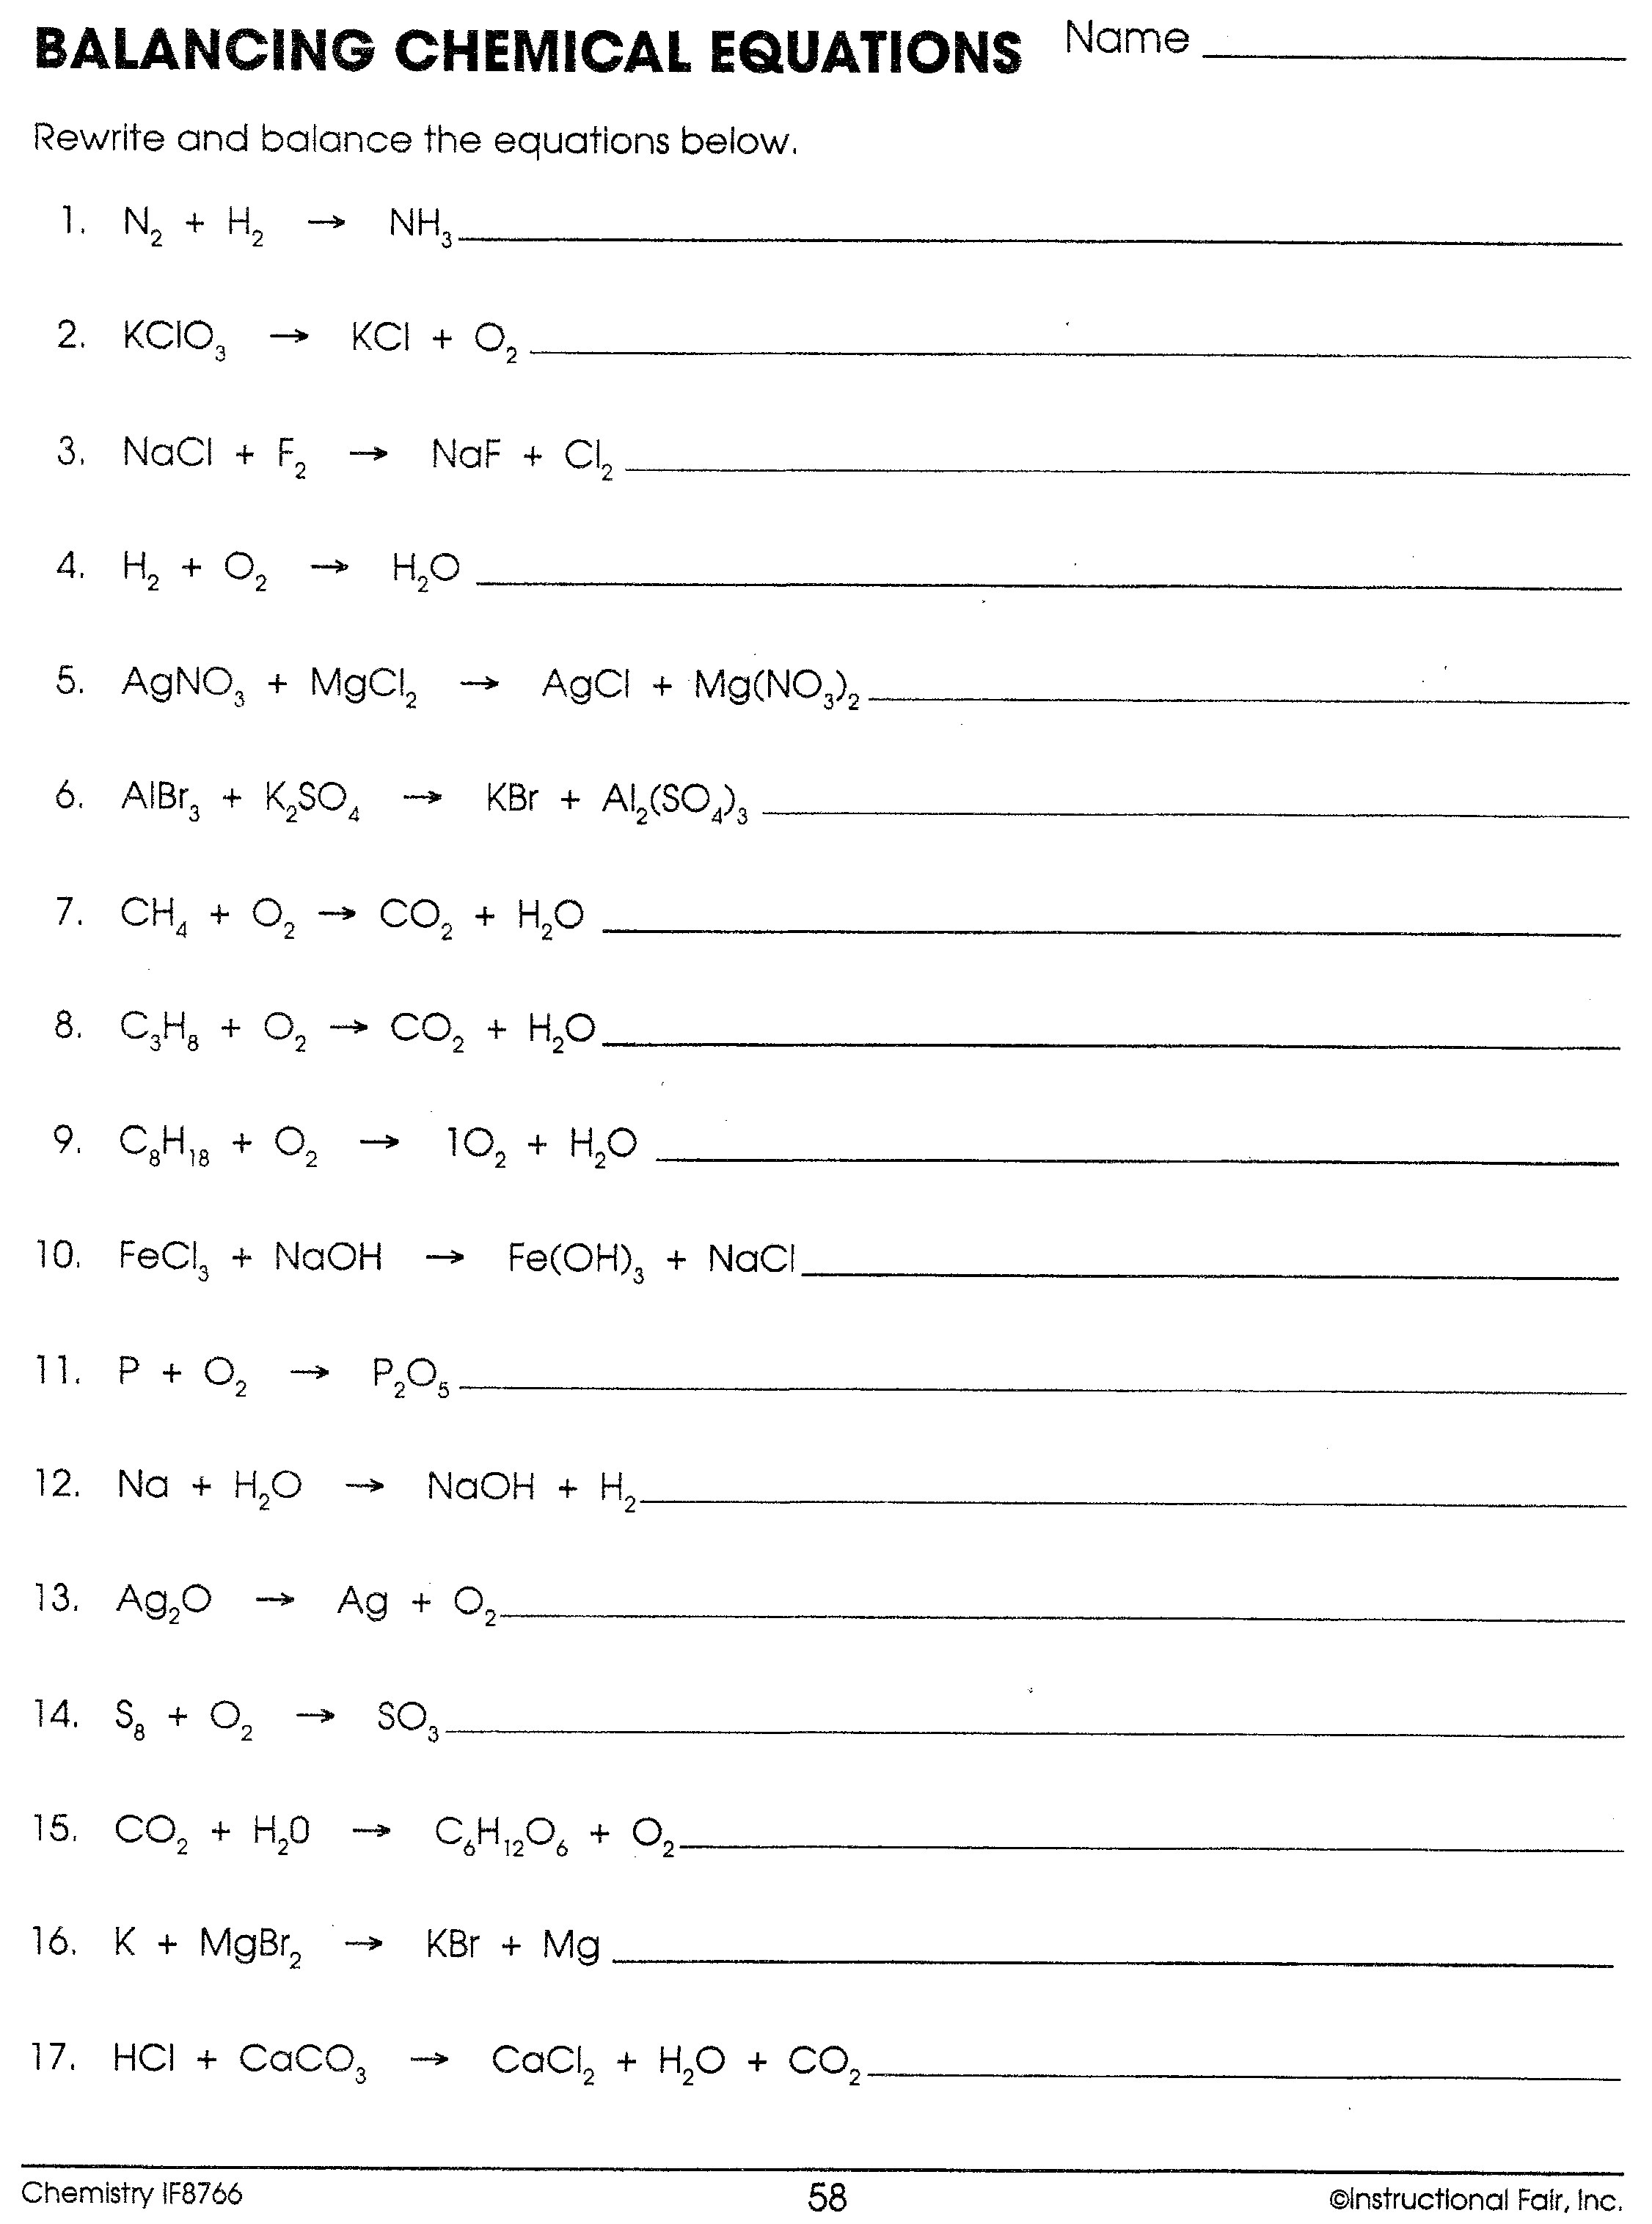 BALANCING CHEMICAL EQUATIONS Name
Rewrite and balance the equations below.
1. N₂ + H₂ → NH₃
2. KClO₃ → KCl + O₂
3. NaCl + F₂ → NaF + Cl₂
4. H₂ + O₂ → H₂O
5. AgNO₃ + MgCl₂ → AgCl + Mg(NO₃)₂
6. AlBr₃ + K₂SO₄ → KBr + Al₂(SO₄)₃
7. CH₄ + O₂ → CO₂ + H₂O
8. C₃H₈ + O₂ → CO₂ + H₂O
9. C₈H₁₈ + O₂ → 1O₂ + H₂O
10. FeCl₃ + NaOH → Fe(OH)₃ + NaCl
11. P + O₂ → P₂O₅
12. Na + H₂O → NaOH + H₂
13. Ag₂O → Ag + O₂
14. S₈ + O₂ → SO₃
15. CO₂ + H₂0 → C₆H₁₂O₆ + O₂
16. K + MgBr₂ → KBr + Mg
17. HCl + CaCO₃ → CaCl₂ + H₂O + CO₂
Chemistry IF8766 58 ©Instructional Fair, Inc.